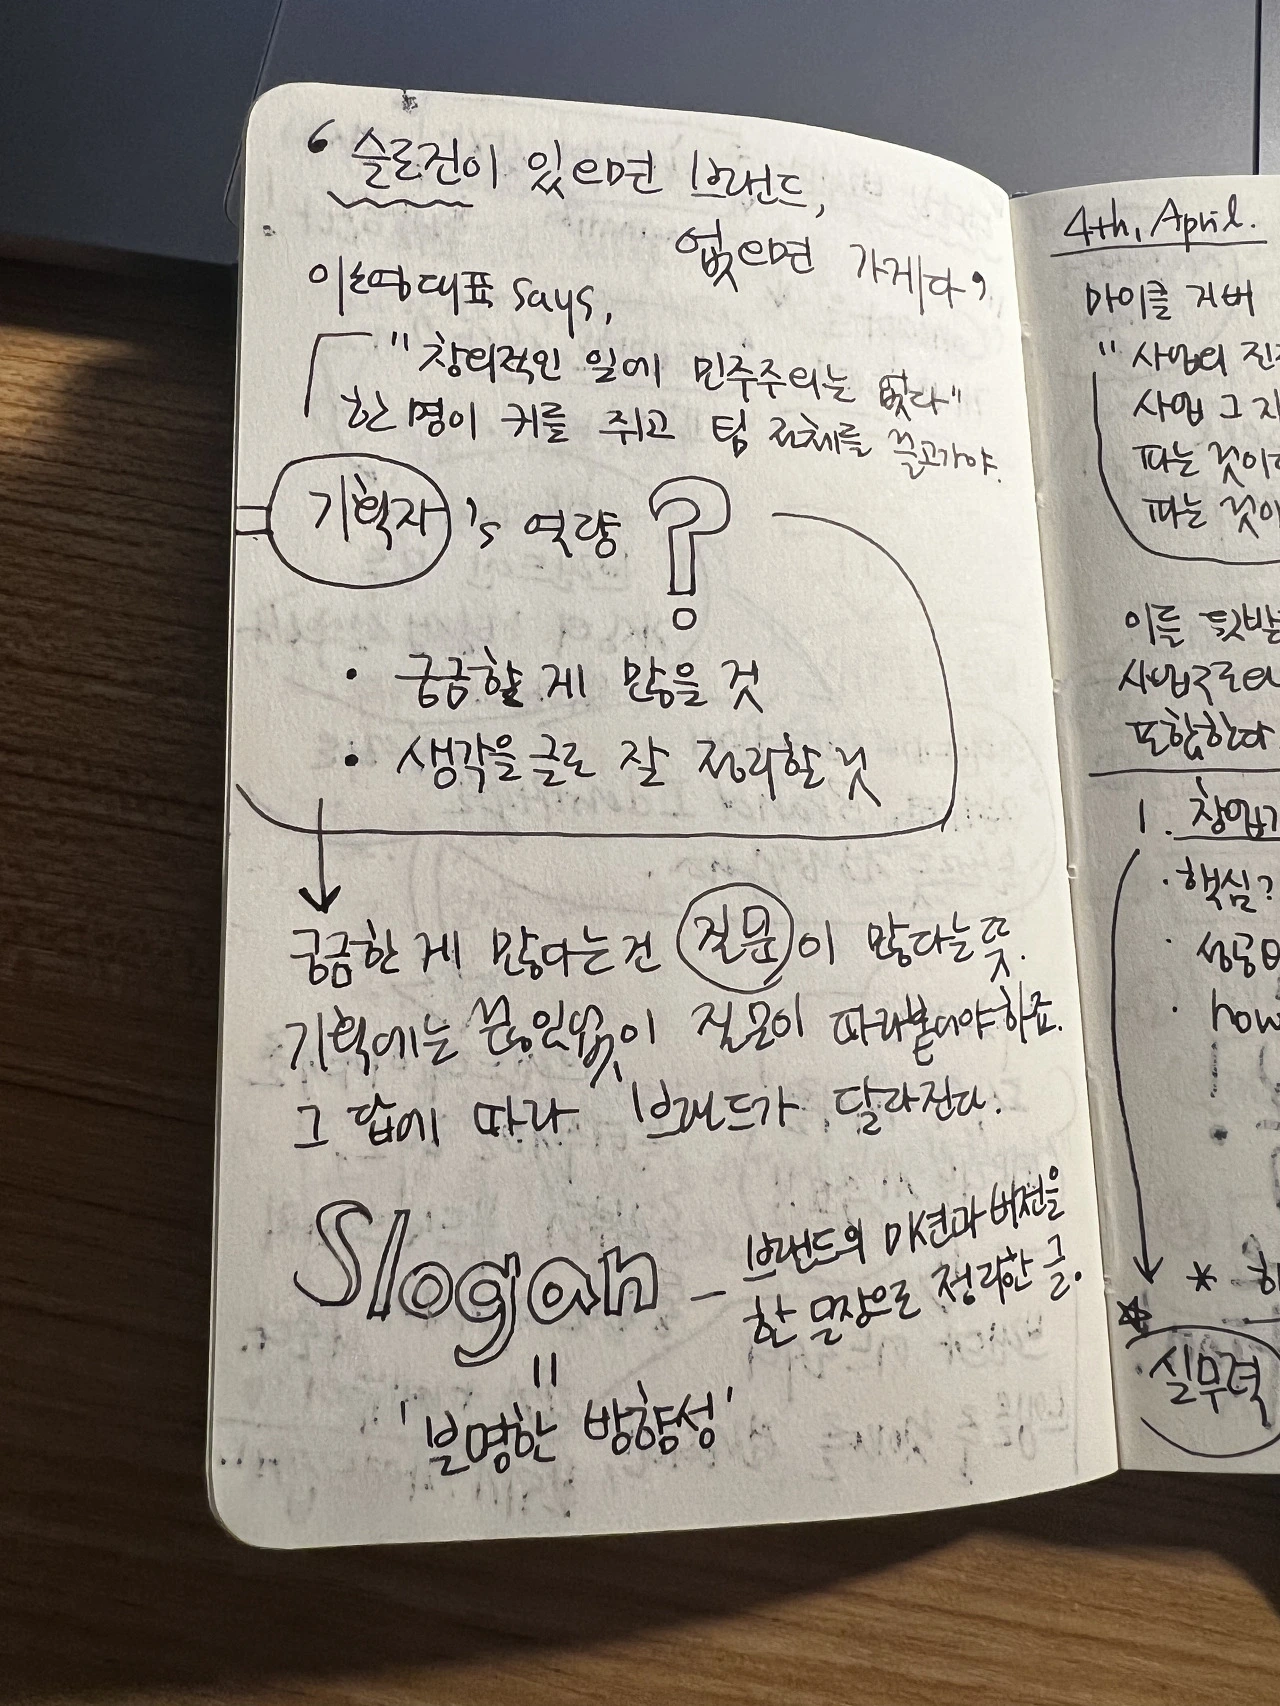 ‘슬로건이 있으면 브랜드,
없으면 가게다’
대표 says,
"창의적인 일에 민주주의는 없다"
한 명이 키를 쥐고 팀 전체를 끌고가야.
기획자's 역량 ?
• 궁금할 게 많을 것
• 생각을 글로 잘 정리할 것
궁금한 게 많다는건 질문이 많다는 뜻.
기획에는 끊임없이 질문이 따라붙어야 하죠.
그 답에 따라 브랜드가 달라진다.
Slogan - 브랜드의 미션과 비전을
한 문장으로 정리한 글.
=
'분명한 방향성'
4th, April.
마이클 거버
"사업의 진
사업 그 자
파는 것이
파는 것이
이를 뒷받
포함한다
1. 창업가
· 핵심?
· 성공
· how
*
실무력